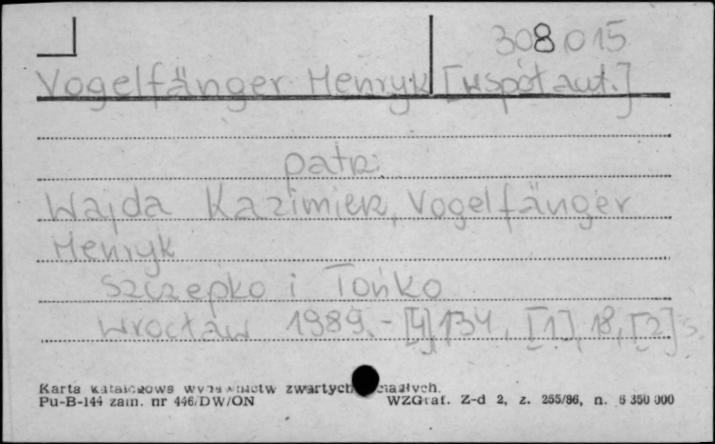 308.015
Vogelfänger Henryk [współaut.]
patrz:
Wajda Kazimierz, Vogelfänger
Henryk
Szczepko i Tońko
Wrocław 1989. - [4], 134, [1], 18, [2] s.
Karta katalogowa wydawnictw zwartych ciągłych.
Pu-B-144 zam. nr 446/DW/ON WZGraf. Z-d 2, z. 265/86, n. 6 350 000